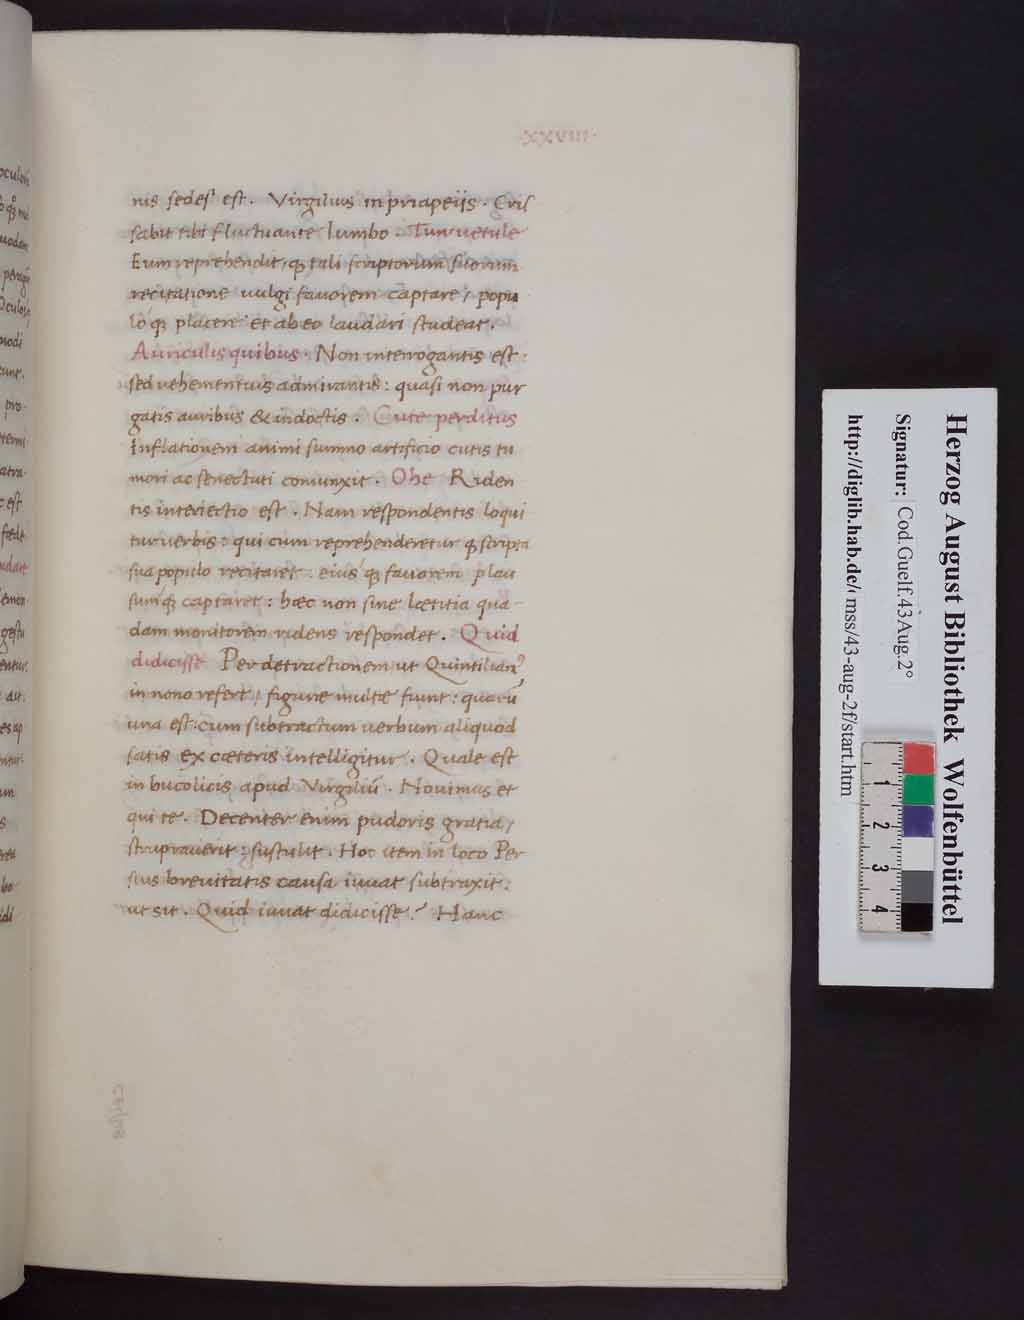 ·XXVIII·
nis sedes est. Virgilius in priapeiis. Cris
sabit tibi fluctuante lumbo. Tun uetule
Eum reprehendit, q tali scriptorum suorum
recitatione uulgi fauorem captare, popu
lo q placere et ab eo laudari studeat.
Auriculis quibus. Non interrogantis est:
sed uehementius admirantis: quasi non pur
gatis auribus & indoctis. Cute perditus
Inflationem animi summo artificio cutis tu
mori ac senectuti coniunxit. Ohe Riden
tis interiectio est. Nam respondentis loqui
tur uerbis: qui cum reprehenderetur q scripta
sua populo recitaret. eius q fauorem plau
sumq captaret: hæc non sine lætitia qua-
dam monitorem ridens respondet. Quid
didicisse Per detractionem ut Quintilian⁹
in nono refert, figuræ multæ fiunt: quarū
una est: cum subtractum uerbum aliquod
satis ex cæteris intelligitur. Quale est
in bucolicis apud Virgiliū. Nouimus et
qui te. Decenter enim pudoris gratia,
struprauerit: sustulit. Hoc item in loco Per
sius breuitatis causa iuuat subtraxit.
ut sit. Quid iuuat didicisse? Hanc
Herzog August Bibliothek Wolfenbüttel
Signatur: Cod.Guelf.43 Aug.2°
http://diglib.hab.de/mss/43-aug-2f/start.htm
1
2
3
4